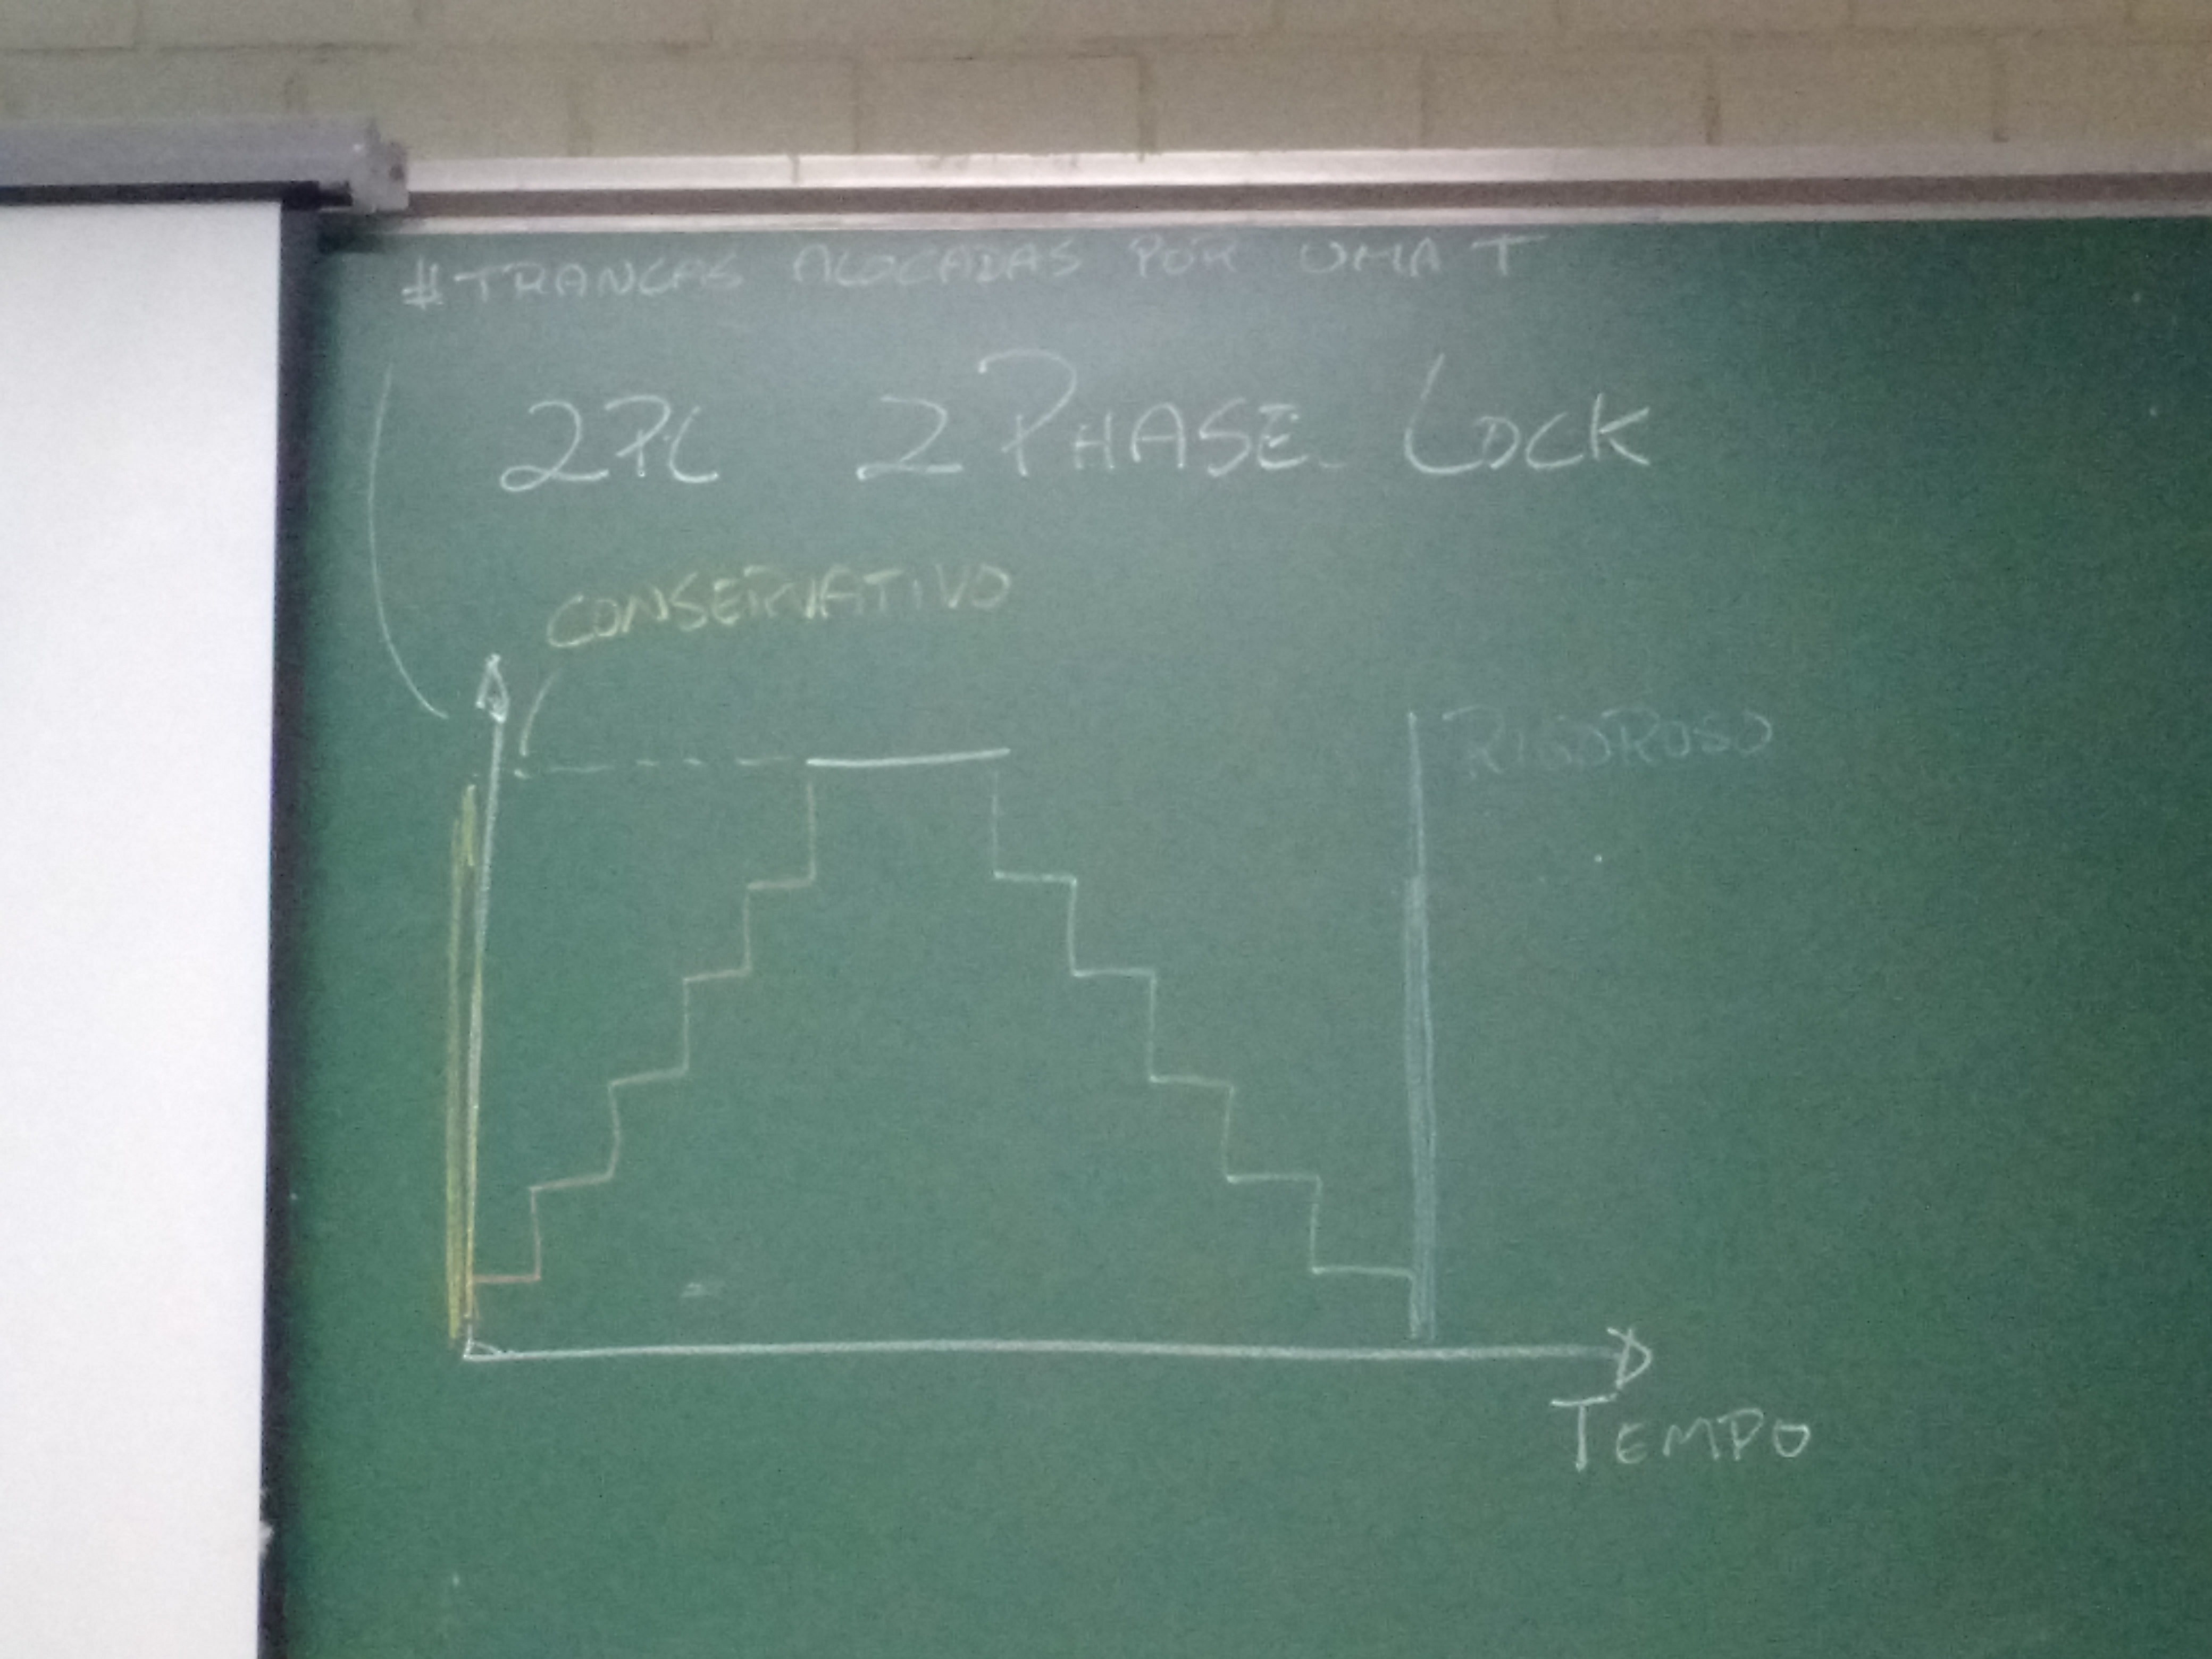 #TRANCAS ALOCADAS POR UMA T
2PL 2 PHASE LOCK
CONSERVATIVO
RIGOROSO
TEMPO